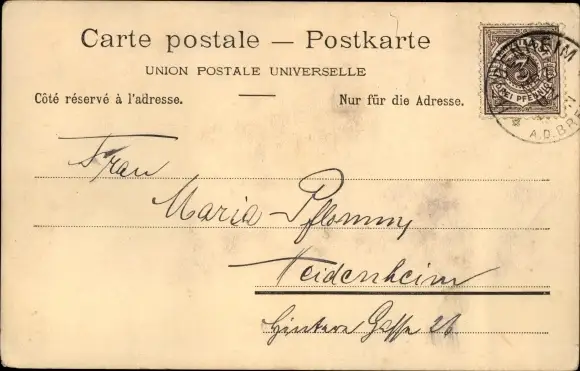 Carte postale — Postkarte
UNION POSTALE UNIVERSELLE
Côté réservé à l'adresse.
Nur für die Adresse.
3
DREI PFENNIG
HEIDENHEIM
A.D.BRE
Frau
Maria Pflomm,
Heidenheim
Hintere Gasse 26